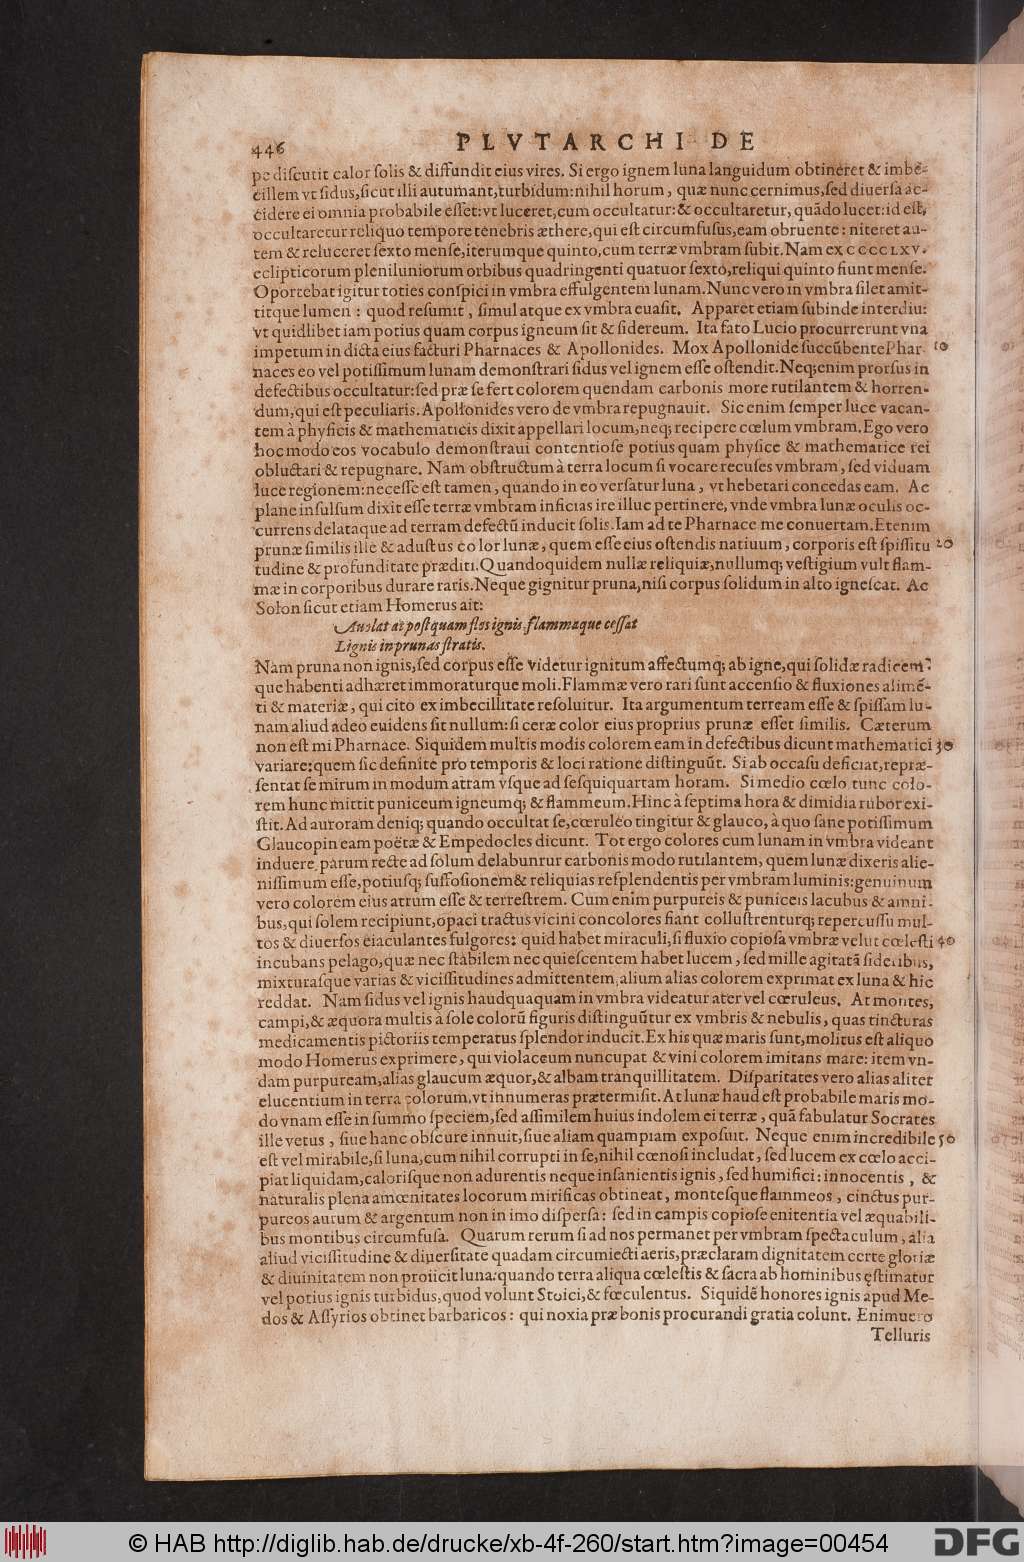 446 PLVTARCHI DE
pe discutit calor solis & diffundit eius vires. Si ergo ignem luna languidum obtineret & imbē-
cillem vt sidus, sicut illi autumant, turbidum: nihil horum, quæ nunc cernimus, sed diuersa ac-
cidere ei omnia probabile esset: vt luceret, cum occultatur: & occultaretur, quādo lucet: id est,
occultaretur reliquo tempore tenebris æthere, qui est circumfusus, eam obruente: niteret au-
tem & reluceret sexto mense, iterumque quinto, cum terræ vmbram subit. Nam ex CCCCLXV.
eclipticorum pleniluniorum orbibus quadringenti quatuor sexto, reliqui quinto fiunt mense.
Oportebat igitur toties conspici in vmbra effulgentem lunam. Nunc vero in vmbra silet amit-
titque lumen: quod resumit, simul atque ex vmbra euasit. Apparet etiam subinde interdiu:
vt quidlibet iam potius quam corpus igneum sit & sidereum. Ita fato Lucio procurrerunt vna
impetum in dicta eius facturi Pharnaces & Apollonides. Mox Apollonide succūbente Phar- 10
naces eo vel potissimum lunam demonstrari sidus vel ignem esse ostendit. Neq; enim prorsus in
defectibus occultatur: sed præ se fert colorem quendam carbonis more rutilantem & horren-
dum, qui est peculiaris. Apollonides vero de vmbra repugnauit. Sic enim semper luce vacan-
tem à physicis & mathematicis dixit appellari locum, neq; recipere cœlum vmbram. Ego vero
hoc modo eos vocabulo demonstraui contentiose potius quam physice & mathematice rei
obluctari & repugnare. Nam obstructum à terra locum si vocare recuses vmbram, sed viduam
luce regionem: necesse est tamen, quando in eo versatur luna, vt hebetari concedas eam. Ac
plane insulsum dixit esse terræ vmbram inficias ire illuc pertinere, vnde vmbra lunæ oculis oc-
currens delataque ad terram defectū inducit solis. Iam ad te Pharnace me conuertam. Etenim
prunæ similis ille & adustus color lunæ, quem esse eius ostendis natiuum, corporis est spissitu 20
tudine & profunditate præditi. Quandoquidem nullæ reliquiæ, nullumq; vestigium vult flam-
mæ in corporibus durare raris. Neque gignitur pruna, nisi corpus solidum in alto ignescat. Ac
Solon sicut etiam Homerus ait:
Auolat at postquam flos ignis, flammaque cessat
Lignis in prunas stratis.
Nam pruna non ignis, sed corpus esse videtur ignitum affectumq; ab igne, qui solidæ radicem-
que habenti adhæret immoraturque moli. Flammæ vero rari sunt accensio & fluxiones alimē-
ti & materiæ, qui cito ex imbecillitate resoluitur. Ita argumentum terream esse & spissam lu-
nam aliud adeo euidens sit nullum: si ceræ color eius proprius prunæ esset similis. Cæterum
non est mi Pharnace. Siquidem multis modis colorem eam in defectibus dicunt mathematici 30
variare: quem sic definite pro temporis & loci ratione distinguūt. Si ab occasu deficiat, repræ-
sentat se mirum in modum atram vsque ad sesquiquartam horam. Si medio cœlo tunc colo-
rem hunc mittit puniceum igneumq; & flammeum. Hinc à septima hora & dimidia rubor exi-
stit. Ad auroram deniq; quando occultat se, cœruleo tingitur & glauco, à quo sane potissimum
Glaucopin eam poëtæ & Empedocles dicunt. Tot ergo colores cum lunam in vmbra videant
induere, parum recte ad solum delabuntur carbonis modo rutilantem, quem lunæ dixeris alie-
nissimum esse, potiusq; suffosionem & reliquias resplendentis per vmbram luminis: genuinum
vero colorem eius atrum esse & terrestrem. Cum enim purpureis & puniceis lacubus & amni-
bus, qui solem recipiunt, opaci tractus vicini concolores fiant collustrenturq; repercussu mul-
tos & diuersos eiaculantes fulgores: quid habet miraculi, si fluxio copiosa vmbræ velut cœlesti 40
incubans pelago, quæ nec stabilem nec quiescentem habet lucem, sed mille agitatā sideribus,
mixturasque varias & vicissitudines admittentem, alium alias colorem exprimat ex luna & hic
reddat. Nam sidus vel ignis haudquaquam in vmbra videatur ater vel cœruleus. At montes,
campi, & æquora multis a sole colorū figuris distinguūtur ex vmbris & nebulis, quas tincturas
medicamentis pictoriis temperatus splendor inducit. Ex his quæ maris sunt, molitus est aliquo
modo Homerus exprimere, qui violaceum nuncupat & vini colorem imitans mare: item vn-
dam purpuream, alias glaucum æquor, & albam tranquillitatem. Disparitates vero alias aliter
elucentium in terra colorum, vt innumeras prætermisit. At lunæ haud est probabile maris mo-
do vnam esse in summo speciem, sed assimilem huius indolem ei terræ, quā fabulatur Socrates
ille vetus, siue hanc obscure innuit, siue aliam quampiam exposuit. Neque enim incredibile 50
est vel mirabile, si luna, cum nihil corrupti in se, nihil cœnosi includat, sed lucem ex cœlo acci-
piat liquidam, calorisque non adurentis neque insanientis ignis, sed humifici: innocentis, &
naturalis plena amœnitates locorum mirificas obtineat, montesque flammeos, cinctus pur-
pureos aurum & argentum non in imo dispersa: sed in campis copiose enitentia vel æquabili-
bus montibus circumfusa. Quarum rerum si ad nos permanet per vmbram spectaculum, alia
aliud vicissitudine & diuersitate quadam circumiecti aeris, præclaram dignitatem certe gloriæ
& diuinitatem non proiicit luna: quando terra aliqua cœlestis & sacra ab hominibus ęstimatur
vel potius ignis turbidus, quod volunt Stoici, & fœculentus. Siquidē honores ignis apud Me-
dos & Assyrios obtinet barbaricos: qui noxia præ bonis procurandi gratia colunt. Enimuero
Telluris
© HAB http://diglib.hab.de/drucke/xb-4f-260/start.htm?image=00454
DFG